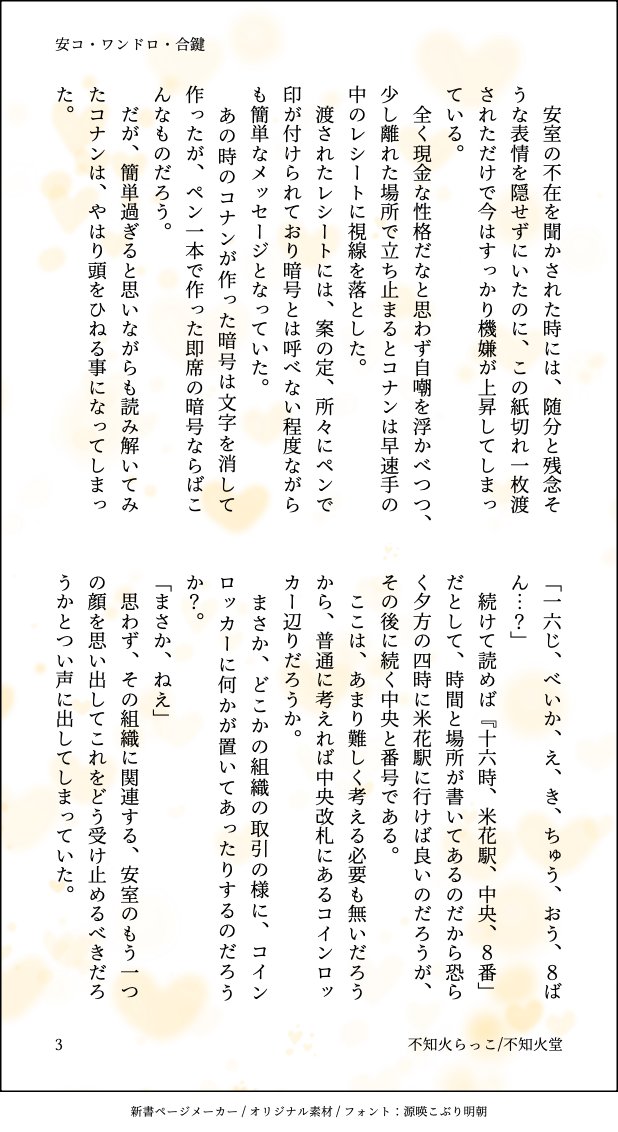 安コ・ワンドロ・合鍵
　安室の不在を聞かされた時には、随分と残念そ
うな表情を隠せずにいたのに、この紙切れ一枚渡
されただけで今はすっかり機嫌が上昇してしまっ
ている。
　全く現金な性格だなと思わず自嘲を浮かべつつ、
少し離れた場所で立ち止まるとコナンは早速手の
中のレシートに視線を落とした。
　渡されたレシートには、案の定、所々にペンで
印が付けられており暗号とは呼べない程度ながら
も簡単なメッセージとなっていた。
　あの時のコナンが作った暗号は文字を消して
作ったが、ペン一本で作った即席の暗号ならばこ
んなものだろう。
　だが、簡単過ぎると思いながらも読み解いてみ
たコナンは、やはり頭をひねる事になってしまっ
た。
「一六じ、べいか、え、き、ちゅう、おう、８ば
ん…？」
　続けて読めば『十六時、米花駅、中央、８番」
だとして、時間と場所が書いてあるのだから恐ら
く夕方の四時に米花駅に行けば良いのだろうが、
その後に続く中央と番号である。
　ここは、あまり難しく考える必要も無いだろう
から、普通に考えれば中央改札にあるコインロッ
カー辺りだろうか。
　まさか、どこかの組織の取引の様に、コイン
ロッカーに何かが置いてあったりするのだろう
か？。
「まさか、ねえ」
　思わず、その組織に関連する、安室のもう一つ
の顔を思い出してこれをどう受け止めるべきだろ
うかとつい声に出してしまっていた。
3
不知火らっこ/不知火堂
新書ページメーカー / オリジナル素材 / フォント：源暎こぶり明朝